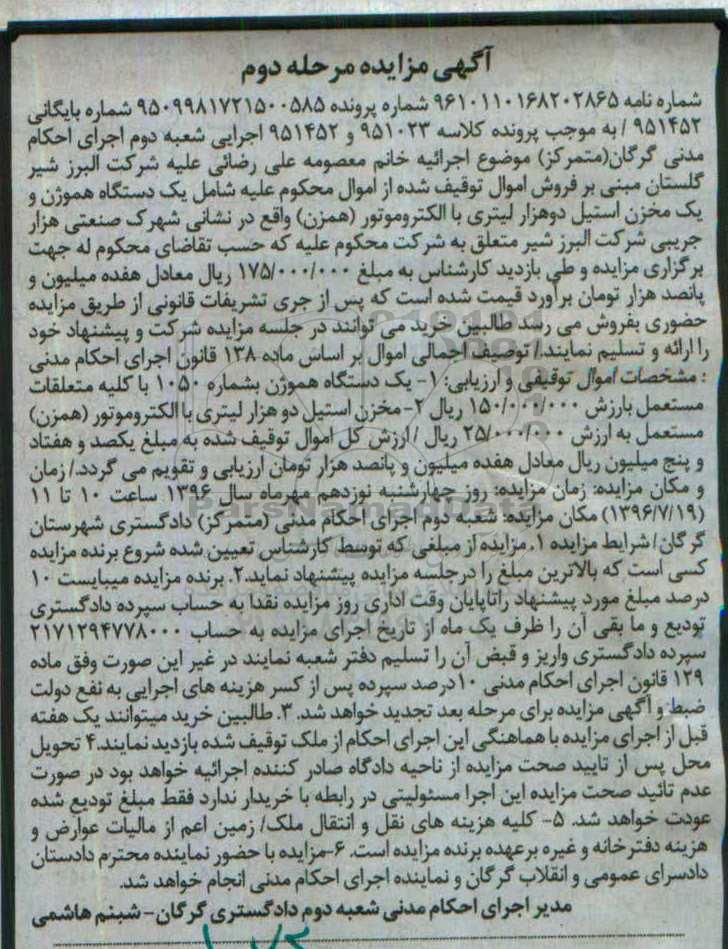 آگهی مزایده مرحله دوم
شماره نامه ۹۶۱۰۱۱۰۱۶۸۲۰۲۸۶۵ شماره پرونده ۹۵۰۹۹۸۱۷۲۱۵۰۰۵۸۵ شماره بایگانی
۹۵۱۴۵۲ / به موجب پرونده کلاسه ۹۵۱۰۲۳ و ۹۵۱۴۵۲ اجرایی شعبه دوم اجرای احکام
مدنی گرگان(متمرکز) موضوع اجرائیه خانم معصومه علی رضائی علیه شرکت البرز شیر
گلستان مبنی بر فروش اموال توقیف شده از اموال محکوم علیه شامل یک دستگاه هموژن و
یک مخزن استیل دوهزار لیتری با الکتروموتور (همزن) واقع در نشانی شهرک صنعتی هزار
جریبی شرکت البرز شیر متعلق به شرکت محکوم علیه که حسب تقاضای محکوم له جهت
برگزاری مزایده و طی بازدید کارشناس به مبلغ ۱۷۵/۰۰۰/۰۰۰ ریال معادل هفده میلیون و
پانصد هزار تومان برآورد قیمت شده است که پس از جری تشریفات قانونی از طریق مزایده
حضوری بفروش می رسد طالبین خرید می توانند در جلسه مزایده شرکت و پیشنهاد خود
را ارائه و تسلیم نمایند./ توصیف اجمالی اموال بر اساس ماده ۱۳۸ قانون اجرای احکام مدنی
: مشخصات اموال توقیفی و ارزیابی: ۱- یک دستگاه هموژن بشماره ۱۰۵۰ با کلیه متعلقات
مستعمل بارزش ۱۵۰/۰۰۰/۰۰۰ ریال ۲- مخزن استیل دو هزار لیتری با الکتروموتور (همزن)
مستعمل به ارزش ۲۵/۰۰۰/۰۰۰ ریال / ارزش کل اموال توقیف شده به مبلغ یکصد و هفتاد
و پنج میلیون ریال معادل هفده میلیون و پانصد هزار تومان ارزیابی و تقویم می گردد./ زمان
و مکان مزایده: زمان مزایده: روز چهارشنبه نوزدهم مهرماه سال ۱۳۹۶ ساعت ۱۰ تا ۱۱
(۱۳۹۶/۷/۱۹) مکان مزایده: شعبه دوم اجرای احکام مدنی (متمرکز) دادگستری شهرستان
گرگان/ شرایط مزایده ۱. مزایده از مبلغی که توسط کارشناس تعیین شده شروع برنده مزایده
کسی است که بالاترین مبلغ را درجلسه مزایده پیشنهاد نماید.۲. برنده مزایده میبایست ۱۰
درصد مبلغ مورد پیشنهاد راتاپایان وقت اداری روز مزایده نقدا به حساب سپرده دادگستری
تودیع و ما بقی آن را ظرف یک ماه از تاریخ اجرای مزایده به حساب ۲۱۷۱۲۹۴۷۷۸۰۰۰
سپرده دادگستری واریز و قبض آن را تسلیم دفتر شعبه نمایند در غیر این صورت وفق ماده
۱۲۹ قانون اجرای احکام مدنی ۱۰درصد سپرده پس از کسر هزینه های اجرایی به نفع دولت
ضبط و آگهی مزایده برای مرحله بعد تجدید خواهد شد. ۳. طالبین خرید میتوانند یک هفته
قبل از اجرای مزایده با هماهنگی این اجرای احکام از ملک توقیف شده بازدید نمایند.۴ تحویل
محل پس از تایید صحت مزایده از ناحیه دادگاه صادر کننده اجرائیه خواهد بود در صورت
عدم تائید صحت مزایده این اجرا مسئولیتی در رابطه با خریدار ندارد فقط مبلغ تودیع شده
عودت خواهد شد. ۵- کلیه هزینه های نقل و انتقال ملک/ زمین اعم از مالیات عوارض و
هزینه دفترخانه و غیره برعهده برنده مزایده است. ۶-مزایده با حضور نماینده محترم دادستان
دادسرای عمومی و انقلاب گرگان و نماینده اجرای احکام مدنی انجام خواهد شد.
مدیر اجرای احکام مدنی شعبه دوم دادگستری گرگان- شبنم هاشمی